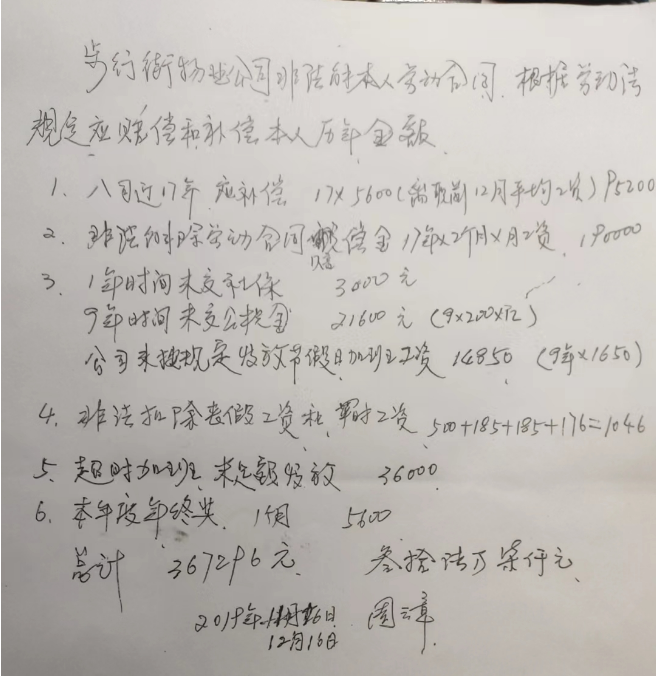 步行街物业公司非法解本人劳动合同，根据劳动法
规定应赔偿和补偿本人历年金额
1、入司近17年 应补偿 17×5600(离职前12月平均工资) 95200
2、非法解除劳动合同赔偿金17年×2个月×月工资 190000
3、1年时间未交社保 3000元
9年时间未交公积金 21600元 (9×200×12)
公司未按规定发放节假日加班工资 14850 (9年×1650)
4、非法扣除丧假工资和 工资 500+185+185+176=1046
5、超时加班未足额发放 36000
6、本年度年终奖 1个月 5600
总计 367296元 叁拾陆万柒仟元
2019年
12月16日 周